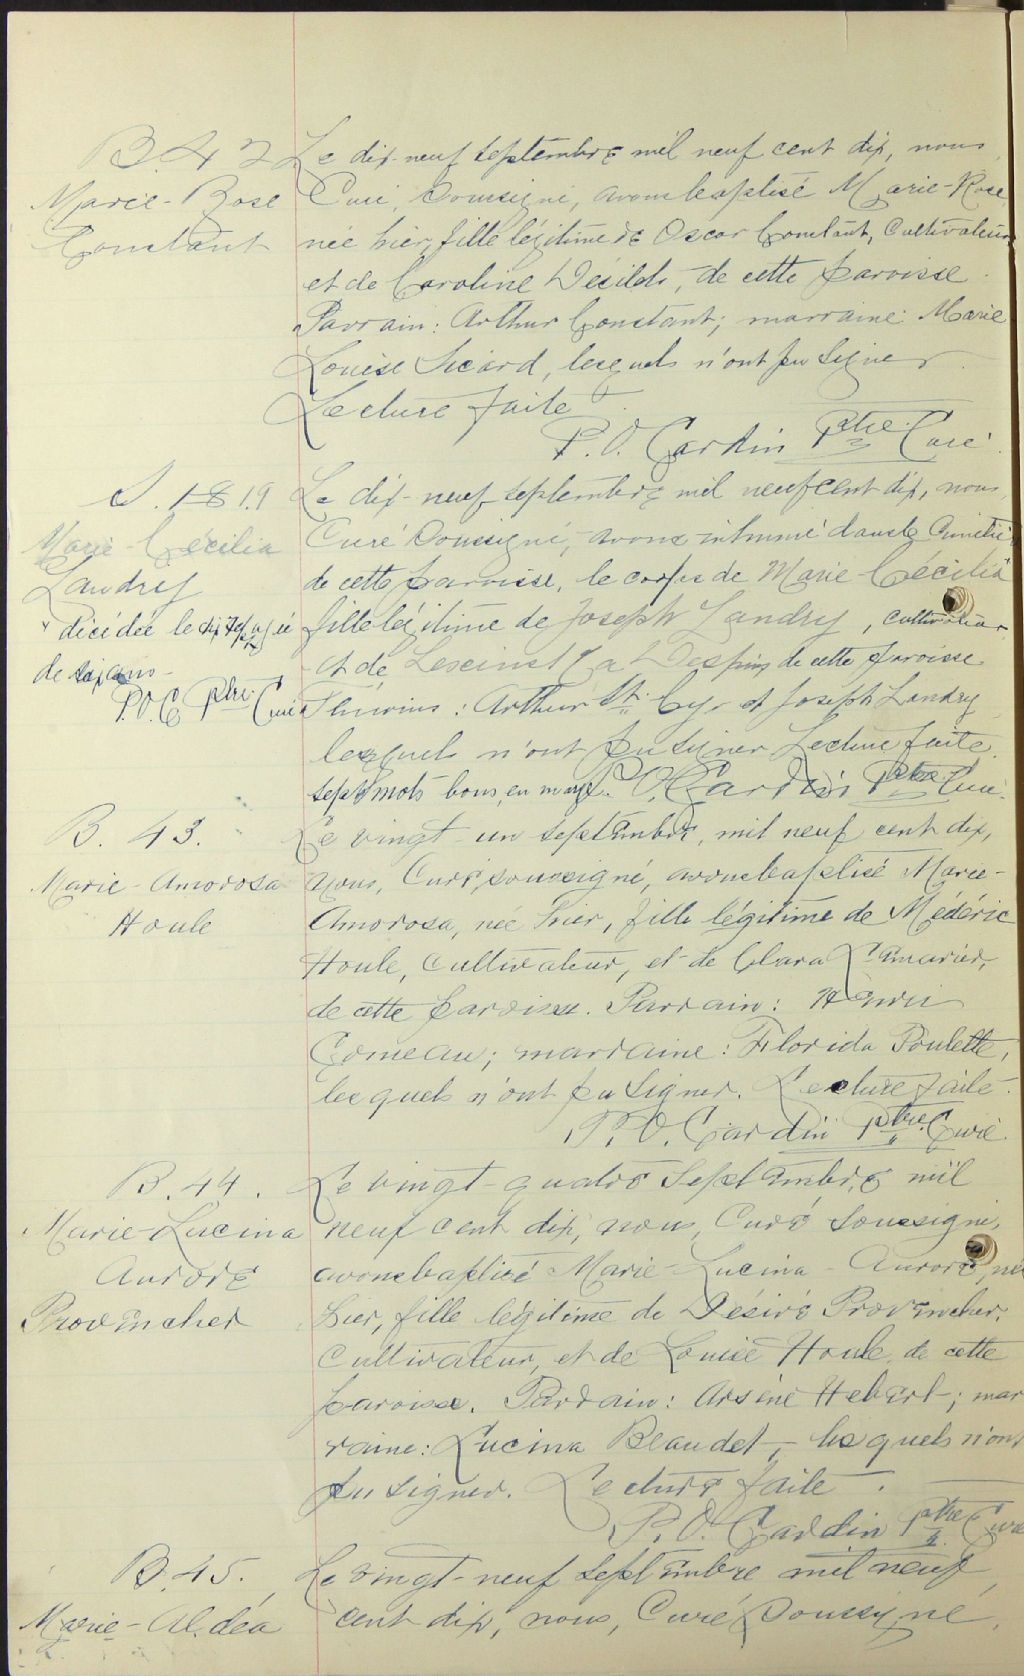 B. 42
Marie-Rose
Constant
Le dix-neuf septembre mil neuf cent dix, nous
Curé, soussigné, avons baptisé Marie-Rose
née hier, fille légitime de Oscar Constant, cultivateur
et de Caroline Désilets, de cette paroisse
Parrain: Arthur Constant; marraine: Marie
Louise Sicard, lesquels n'ont pu signer
Lecture faite
P. O. Cardin Ptre Curé
S. 18 19
Marie-Cécilia
Landry
décédée le dix-sept
de six ans
P.O.C Ptre Curé
Le dix-neuf septembre mil neuf cent dix, nous
Curé soussigné, avons inhumé dans le cimetière
de cette paroisse, le corps de Marie-Cécilia
fille légitime de Joseph Landry, cultivateur
et de de cette paroisse
Témoins: Arthur St. Cyr et Joseph Landry
lesquels n'ont pu signer Lecture faite
sept mots bons en marge. P. O. Cardin Ptre Curé
B. 43.
Marie-Amorosa
Houle
Le vingt-un septembre, mil neuf cent dix,
nous, Curé, soussigné, avons baptisé Marie-
Amorosa, née hier, fille légitime de Médéric
Houle, cultivateur, et de Clara Lemarier,
de cette paroisse. Parrain: Henri
Comeau; marraine: Florida Poulette,
lesquels n'ont pu signer. Lecture faite.
P. O. Cardin Ptre Curé
B. 44.
Marie-Lucina
Aurore
Provencher
Le vingt-quatre septembre mil
neuf cent dix, nous, Curé soussigné,
avons baptisé Marie-Lucina-Aurore, née
hier, fille légitime de Désiré Provencher,
cultivateur, et de Louise Houle, de cette
paroisse. Parrain: Arsène Hebert; mar
raine: Lucina Beaudet, lesquels n'ont
pu signer. Lecture faite.
P. O. Cardin Ptre Curé
B. 45.
Marie-Aldéa
Le vingt-neuf septembre mil neuf
cent dix, nous, Curé soussigné,